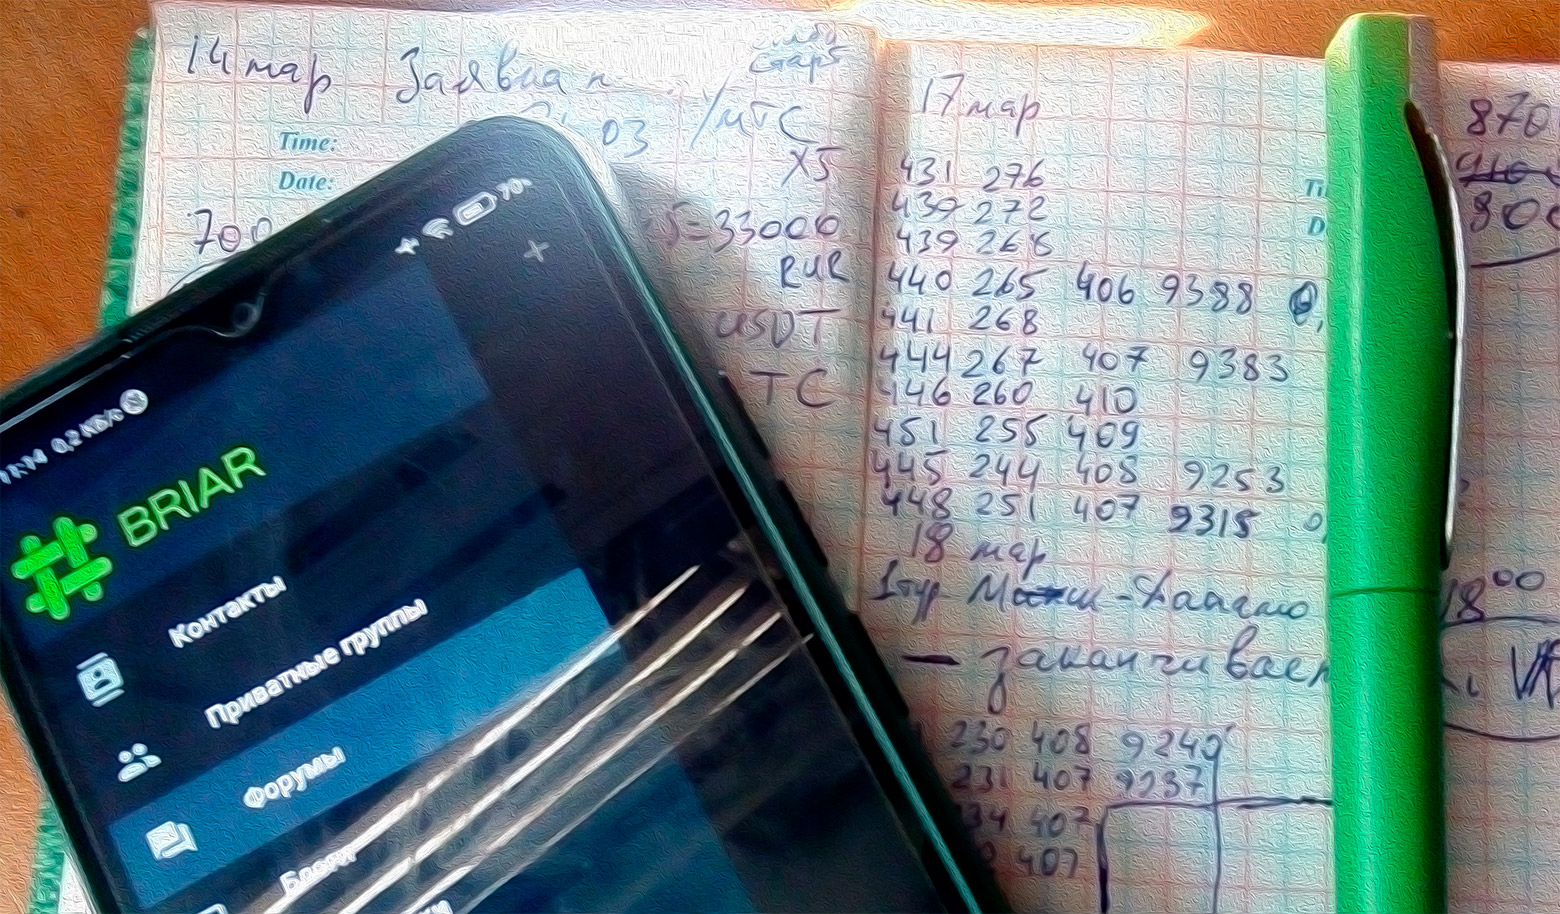 14 мар Заявка
03 / МТС
X5
Time:
Date:
700
5=33000
RUR
USDT
TC
17 мар
431 276
439 272
439 268
440 265 406 9388
441 268
444 267 407 9383
446 260 410
451 255 409
445 244 408 9253
448 251 407 9315
18 мар
1 тур
— заканчивает
230 408 9240
231 407 9237
34 407
407
870
800
18 00
70%
11:14 0,2 КБ/с
BRIAR
Контакты
Приватные группы
Форумы
Блоги